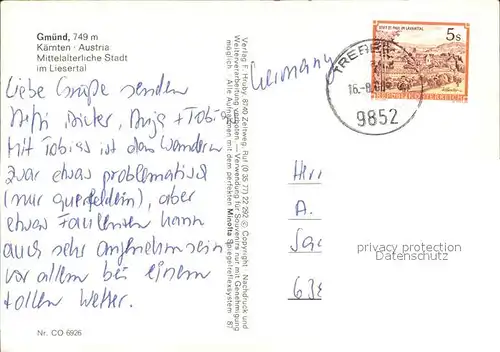 Gmünd, 749 m
Kärnten · Austria
Mittelalterliche Stadt
im Liesertal
Liebe Grüße senden
Dieter, Anja + Tobias
Mit Tobias ist das Wandern
zwar etwas problematisch
(nur querfeldein), aber
etwas Faulenzen kann
auch sehr angenehm sein
vor allem bei einem
tollen Wetter.
Nr. CO 6926
Verlag F. Hruby, 8740 Zeltweg, Ruf (0 35 77) 22 292 © Copyright Nachdruck und
Weiterverarbeitung verboten. — Verwendung für Souvenirs nur mit Genehmigung
möglich. - Alle Aufnahmen mit dem perfekten Minolta Spiegelreflexsystem 87
Germany
5s
STIFT ST. PAUL IM LAVANTTAL
REPUBLIK ÖSTERREICH
TREBE
16.-8.
9852
Herr
A.
privacy protection
Datenschutz